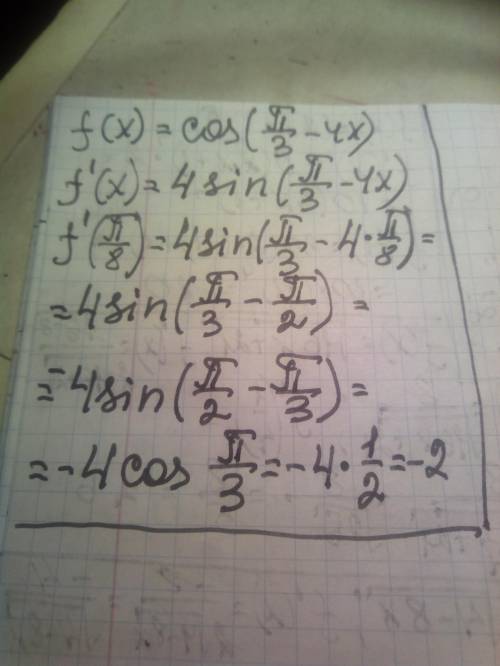 f(x) = cos(π/3 - 4x)
f'(x) = 4 sin(π/3 - 4x)
f'(π/8) = 4 sin(π/3 - 4·π/8) =
= 4 sin(π/3 - π/2) =
= -4 sin(π/2 - π/3) =
= -4 cos π/3 = -4·1/2 = -2